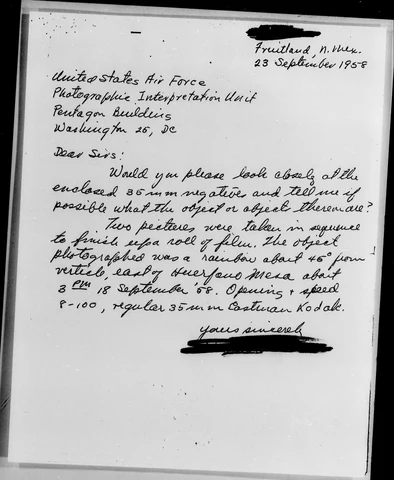 Fruitland, N. Mex.
23 September 1958
United States Air Force
Photographic Interpretation Unit
Pentagon Building
Washington 25, DC
Dear Sirs:
Would you please look closely at the
enclosed 35 mm negatives and tell me if
possible what the object or objects thereon are?
Two pictures were taken in sequence
to finish up a roll of film. The object
photographed was a rainbow about 45° from
verticle, east of Huerfano Mesa about
3 PM 18 September '58. Opening + speed
8-100, regular 35 mm Eastman Kodak.
Yours sincerely